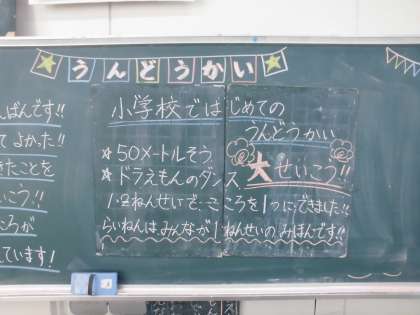 うんどうかい
ぱんです!!
てよかった!!
きたことを
いこう!!
ころが
ています!
小学校ではじめての
うんどうかい
大せいこう!!
★50メートルそう
★ドラえもんのダンス
1・2ねんせいで…こころを1つにできました!!
らいねんは、みんなが1ねんせいのみほんです!!